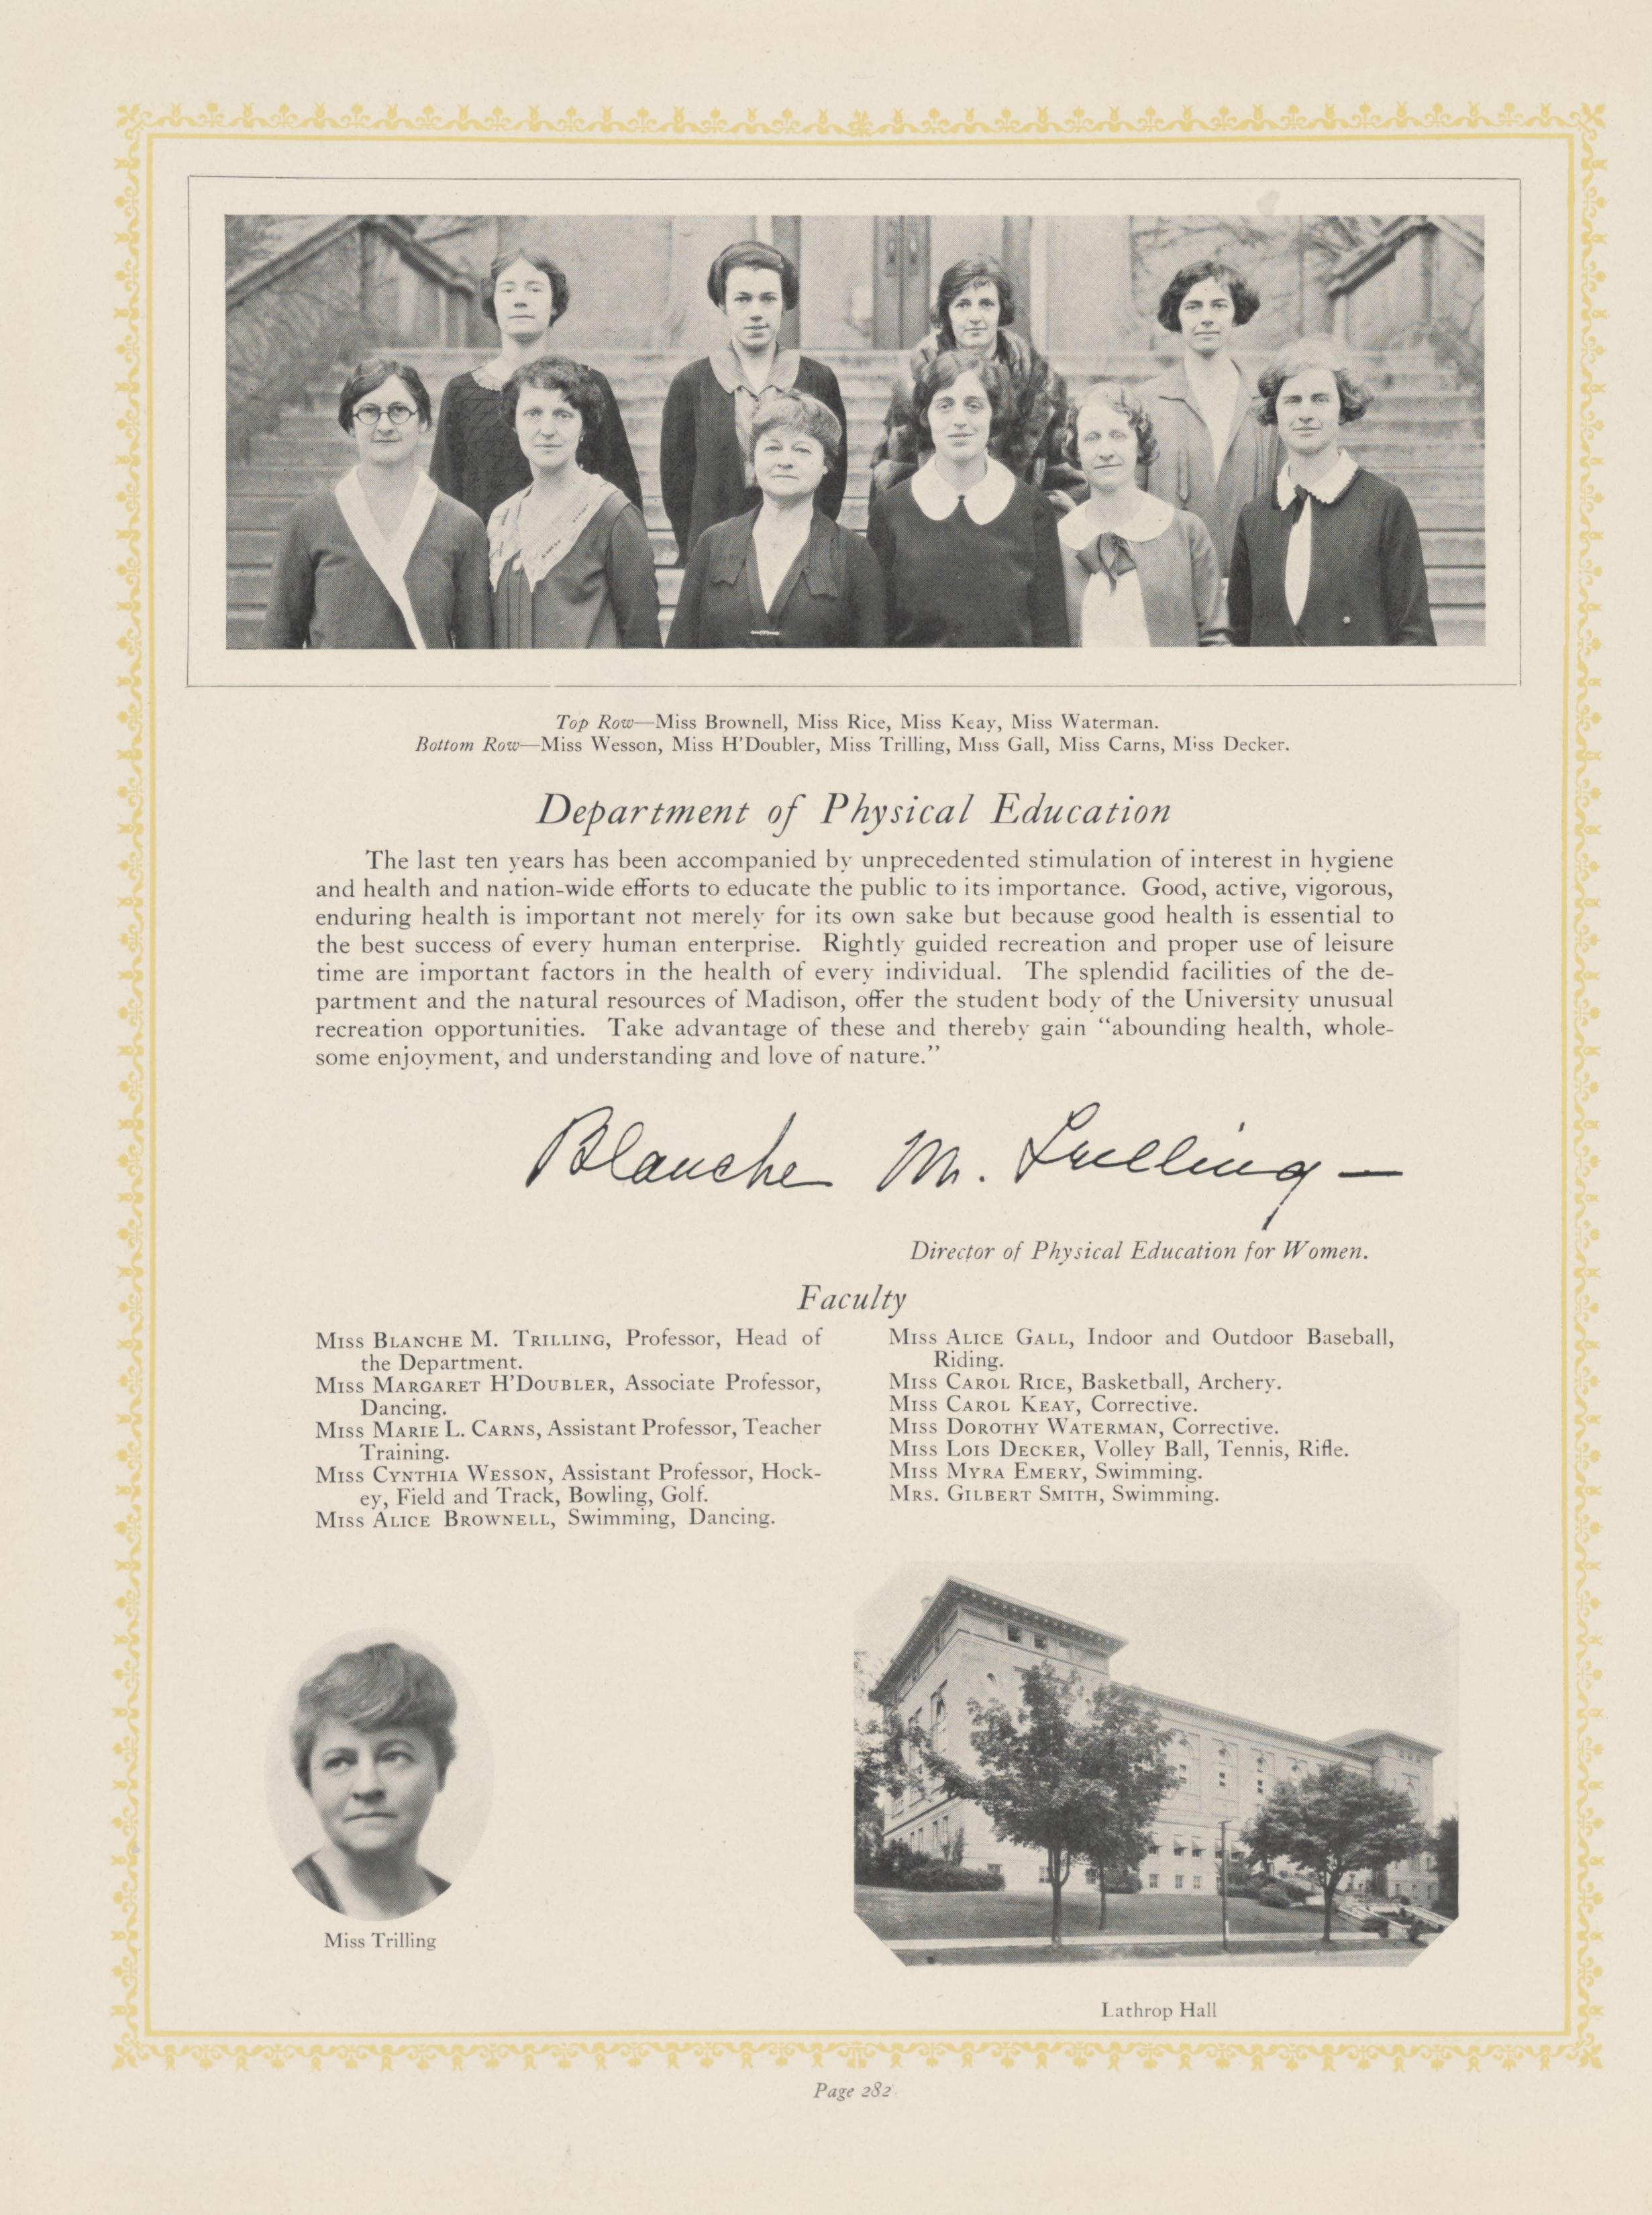 Top Row—Miss Brownell, Miss Rice, Miss Keay, Miss Waterman.
Bottom Row—Miss Wesson, Miss H'Doubler, Miss Trilling, Miss Gall, Miss Carns, Miss Decker.
Department of Physical Education
The last ten years has been accompanied by unprecedented stimulation of interest in hygiene
and health and nation-wide efforts to educate the public to its importance. Good, active, vigorous,
enduring health is important not merely for its own sake but because good health is essential to
the best success of every human enterprise. Rightly guided recreation and proper use of leisure
time are important factors in the health of every individual. The splendid facilities of the de-
partment and the natural resources of Madison, offer the student body of the University unusual
recreation opportunities. Take advantage of these and thereby gain “abounding health, whole-
some enjoyment, and understanding and love of nature.”
Blanche M. Trilling—
Director of Physical Education for Women.
Faculty
Miss Blanche M. Trilling, Professor, Head of
the Department.
Miss Margaret H'Doubler, Associate Professor,
Dancing.
Miss Marie L. Carns, Assistant Professor, Teacher
Training.
Miss Cynthia Wesson, Assistant Professor, Hock-
ey, Field and Track, Bowling, Golf.
Miss Alice Brownell, Swimming, Dancing.
Miss Alice Gall, Indoor and Outdoor Baseball,
Riding.
Miss Carol Rice, Basketball, Archery.
Miss Carol Keay, Corrective.
Miss Dorothy Waterman, Corrective.
Miss Lois Decker, Volley Ball, Tennis, Rifle.
Miss Myra Emery, Swimming.
Mrs. Gilbert Smith, Swimming.
Miss Trilling
Lathrop Hall
Page 282